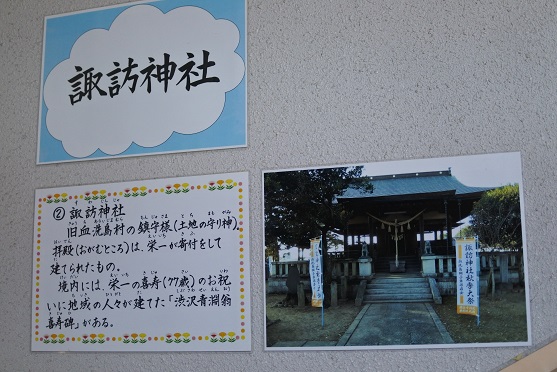 諏訪神社
② 諏訪神社
旧血洗島村の鎮守様(土地の守り神)。
拝殿(おがむところ)は、栄一が寄付をして
建てられたもの。
境内には、栄一の喜寿(77歳)のお祝
いに地域の人々が建てた「渋沢青淵翁
喜寿碑」がある。
諏訪神社秋季大祭